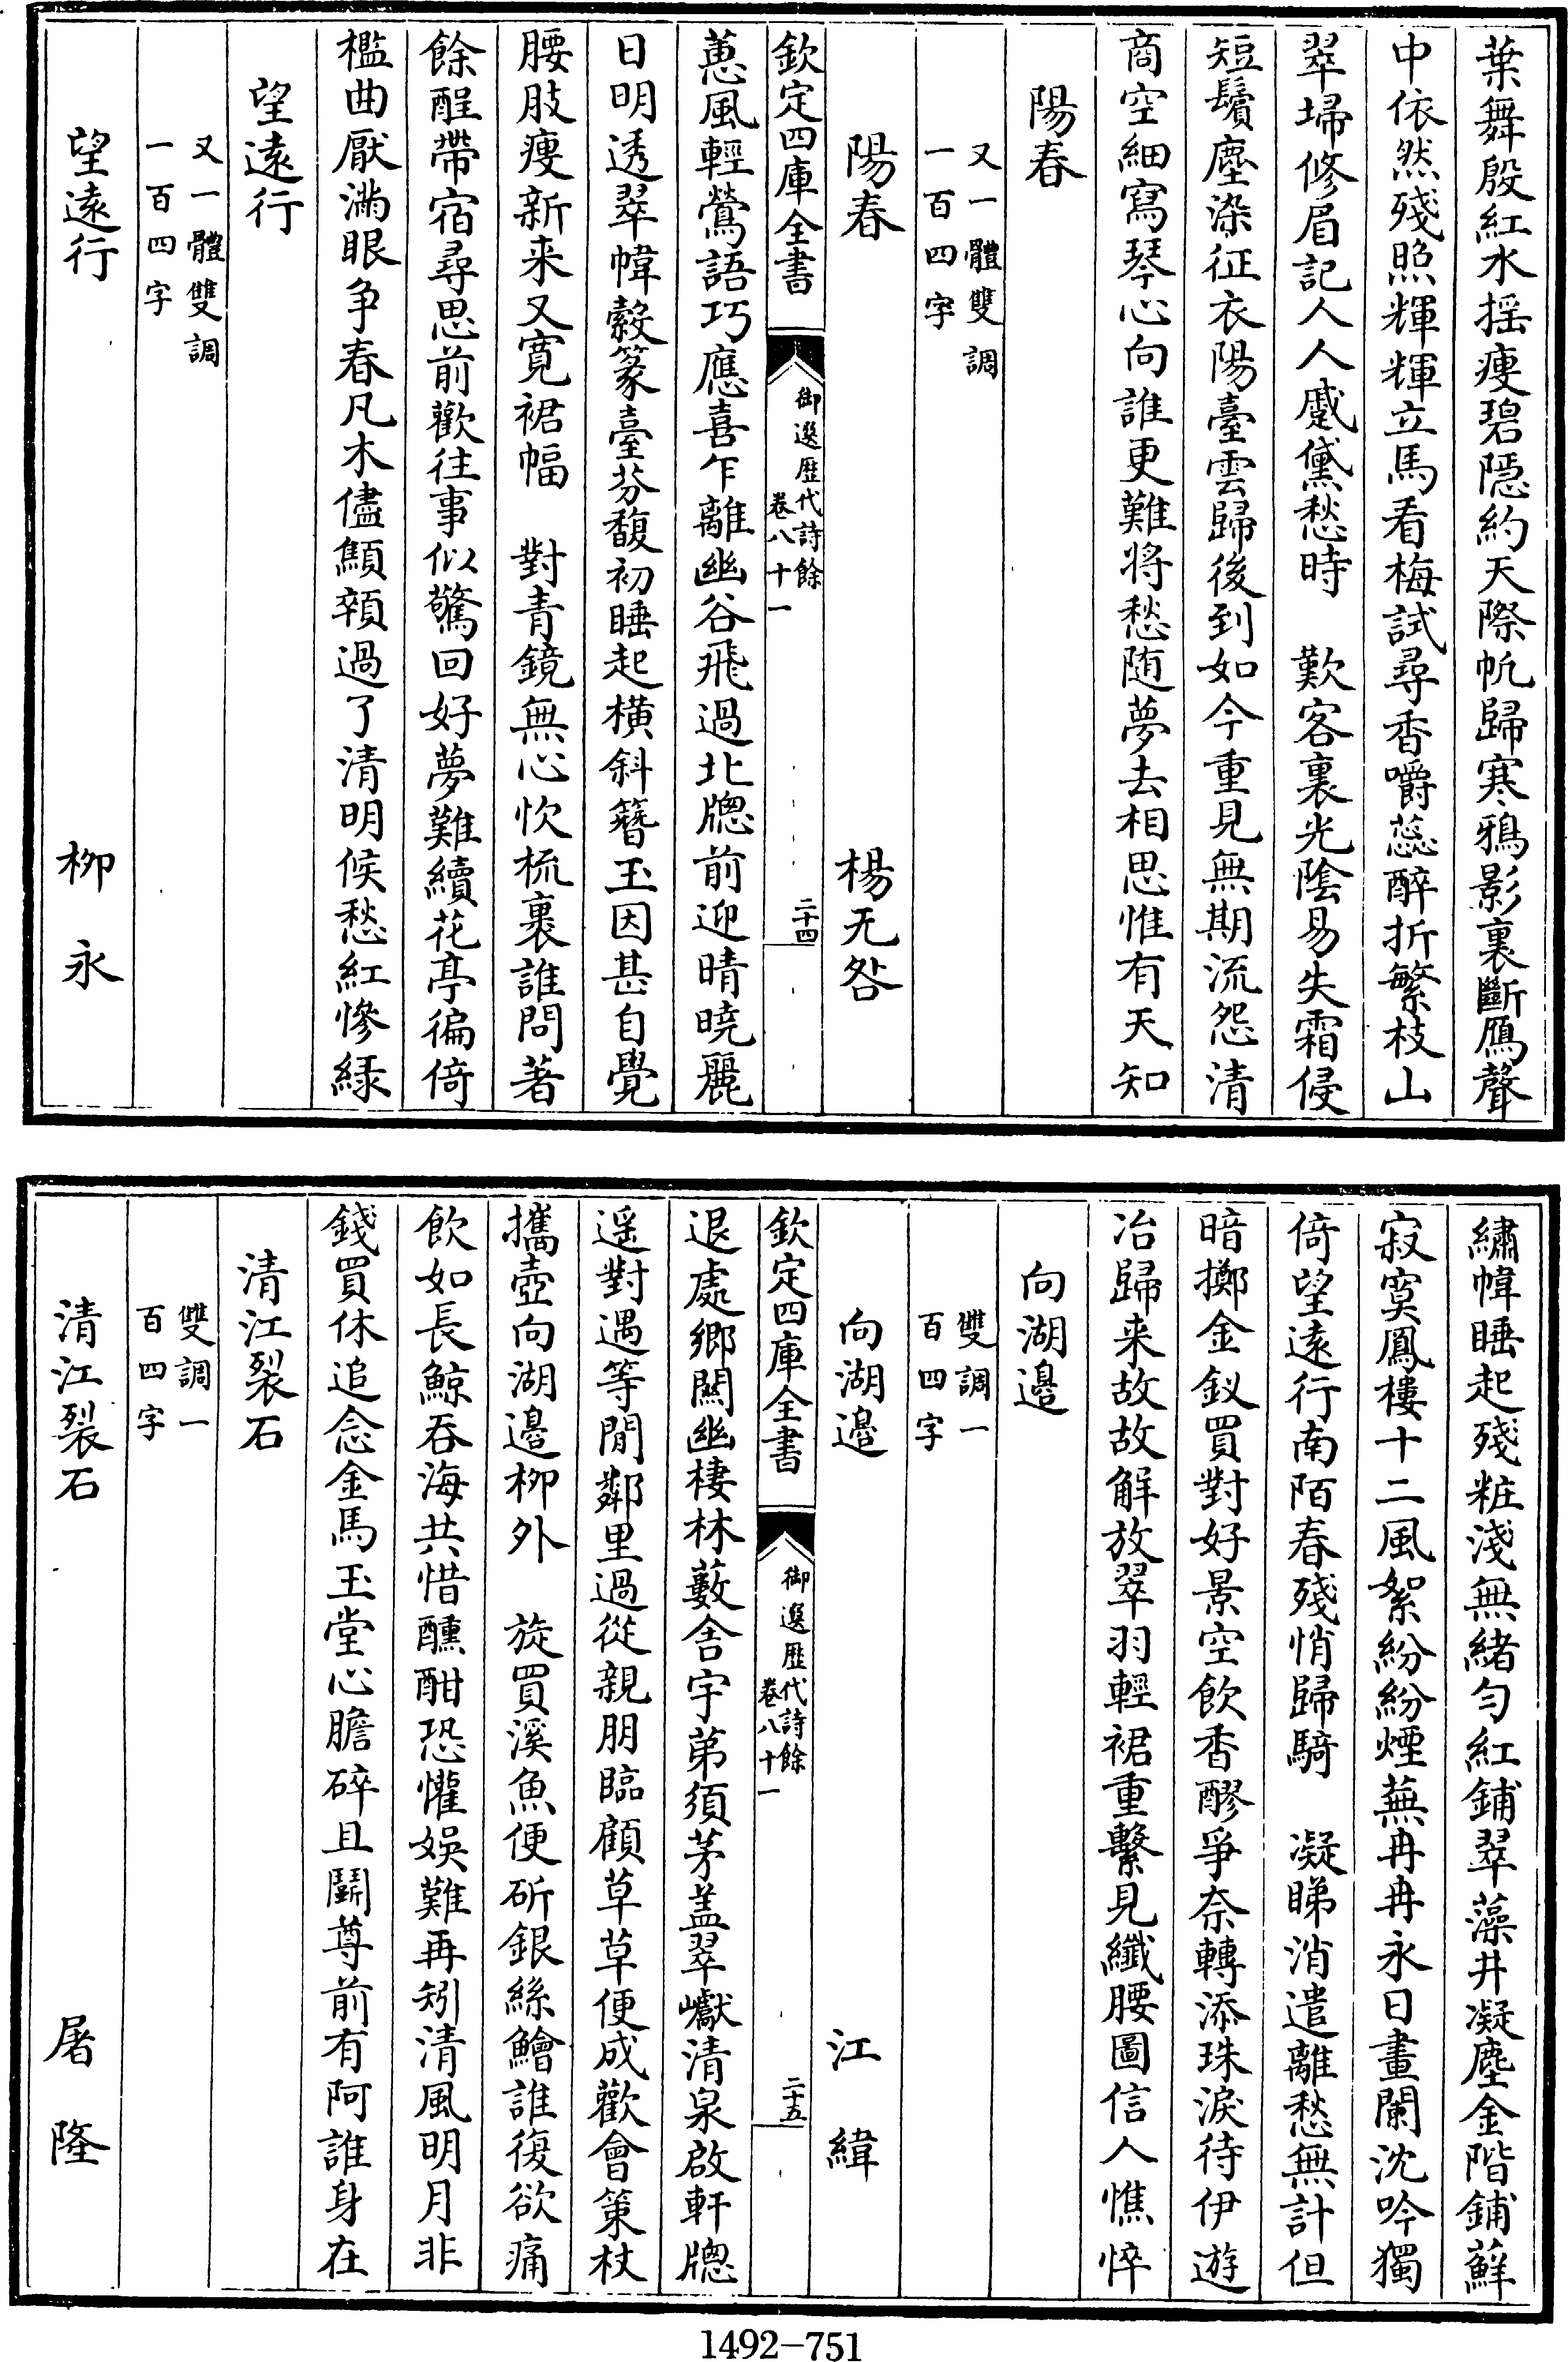 葉舞殷紅水揺瘦碧隠約天際㠶歸寒鴉影裏斷鴈聲
中依然殘照輝輝立馬看梅試尋香嚼蕊醉折繁枝山
翠埽修眉記人人蹙黛愁時　歎客裏光陰易失霜侵
短鬢塵染征衣陽臺雲歸後到如今重見無期流怨清
商空細寫琴心向誰更難將愁随夢去相思惟有天知
陽春
又一體雙調
一百四字
陽春　楊无咎
欽定四庫全書
御選歷代詩餘
卷八十一
二十四
蕙風輕鶯語巧應喜乍離幽谷飛過北牕前迎晴曉麗
日明透翠幃縠篆臺芬馥初睡起橫斜簪玉因甚自覺
腰肢瘦新来又寛裙幅　對青鏡無心忺梳裹誰問著
餘酲帶宿尋思前歡往事似驚回好夢難續花亭徧倚
檻曲厭滿眼争春凡木儘顦顇過了清明候愁紅慘緑
望遠行
又一體雙調
一百四字
望遠行　柳永
繡幃睡起殘粧淺無緒勻紅鋪翠藻井凝塵金階鋪蘚
寂寞鳳樓十二風絮紛紛煙蕪冉冉永日畫闌沈吟獨
倚望遠行南陌春殘悄歸騎　凝睇消遣離愁無計但
暗擲金釵買對好景空飲香醪爭奈轉添珠淚待伊遊
冶歸来故故解放翠羽輕裙重繫見纖腰圖信人憔悴
向湖邉
雙調一
百四字
向湖邉　江緯
欽定四庫全書
御選歷代詩餘
卷八十一
二十五
退處鄉關幽棲林藪舍宇第須茅盖翠巘清泉啟軒牕
遥對遇等閒鄰里過從親朋臨顧草草便成歡會策杖
攜壺向湖邉柳外　旋買溪魚便斫銀絲鱠誰復欲痛
飲如長鯨吞海共惜醺酣恐懽娛難再矧清風明月非
錢買休追念金馬玉堂心膽碎且鬭尊前有阿誰身在
清江裂石
雙調一
百四字
清江裂石　屠隆
1492-751